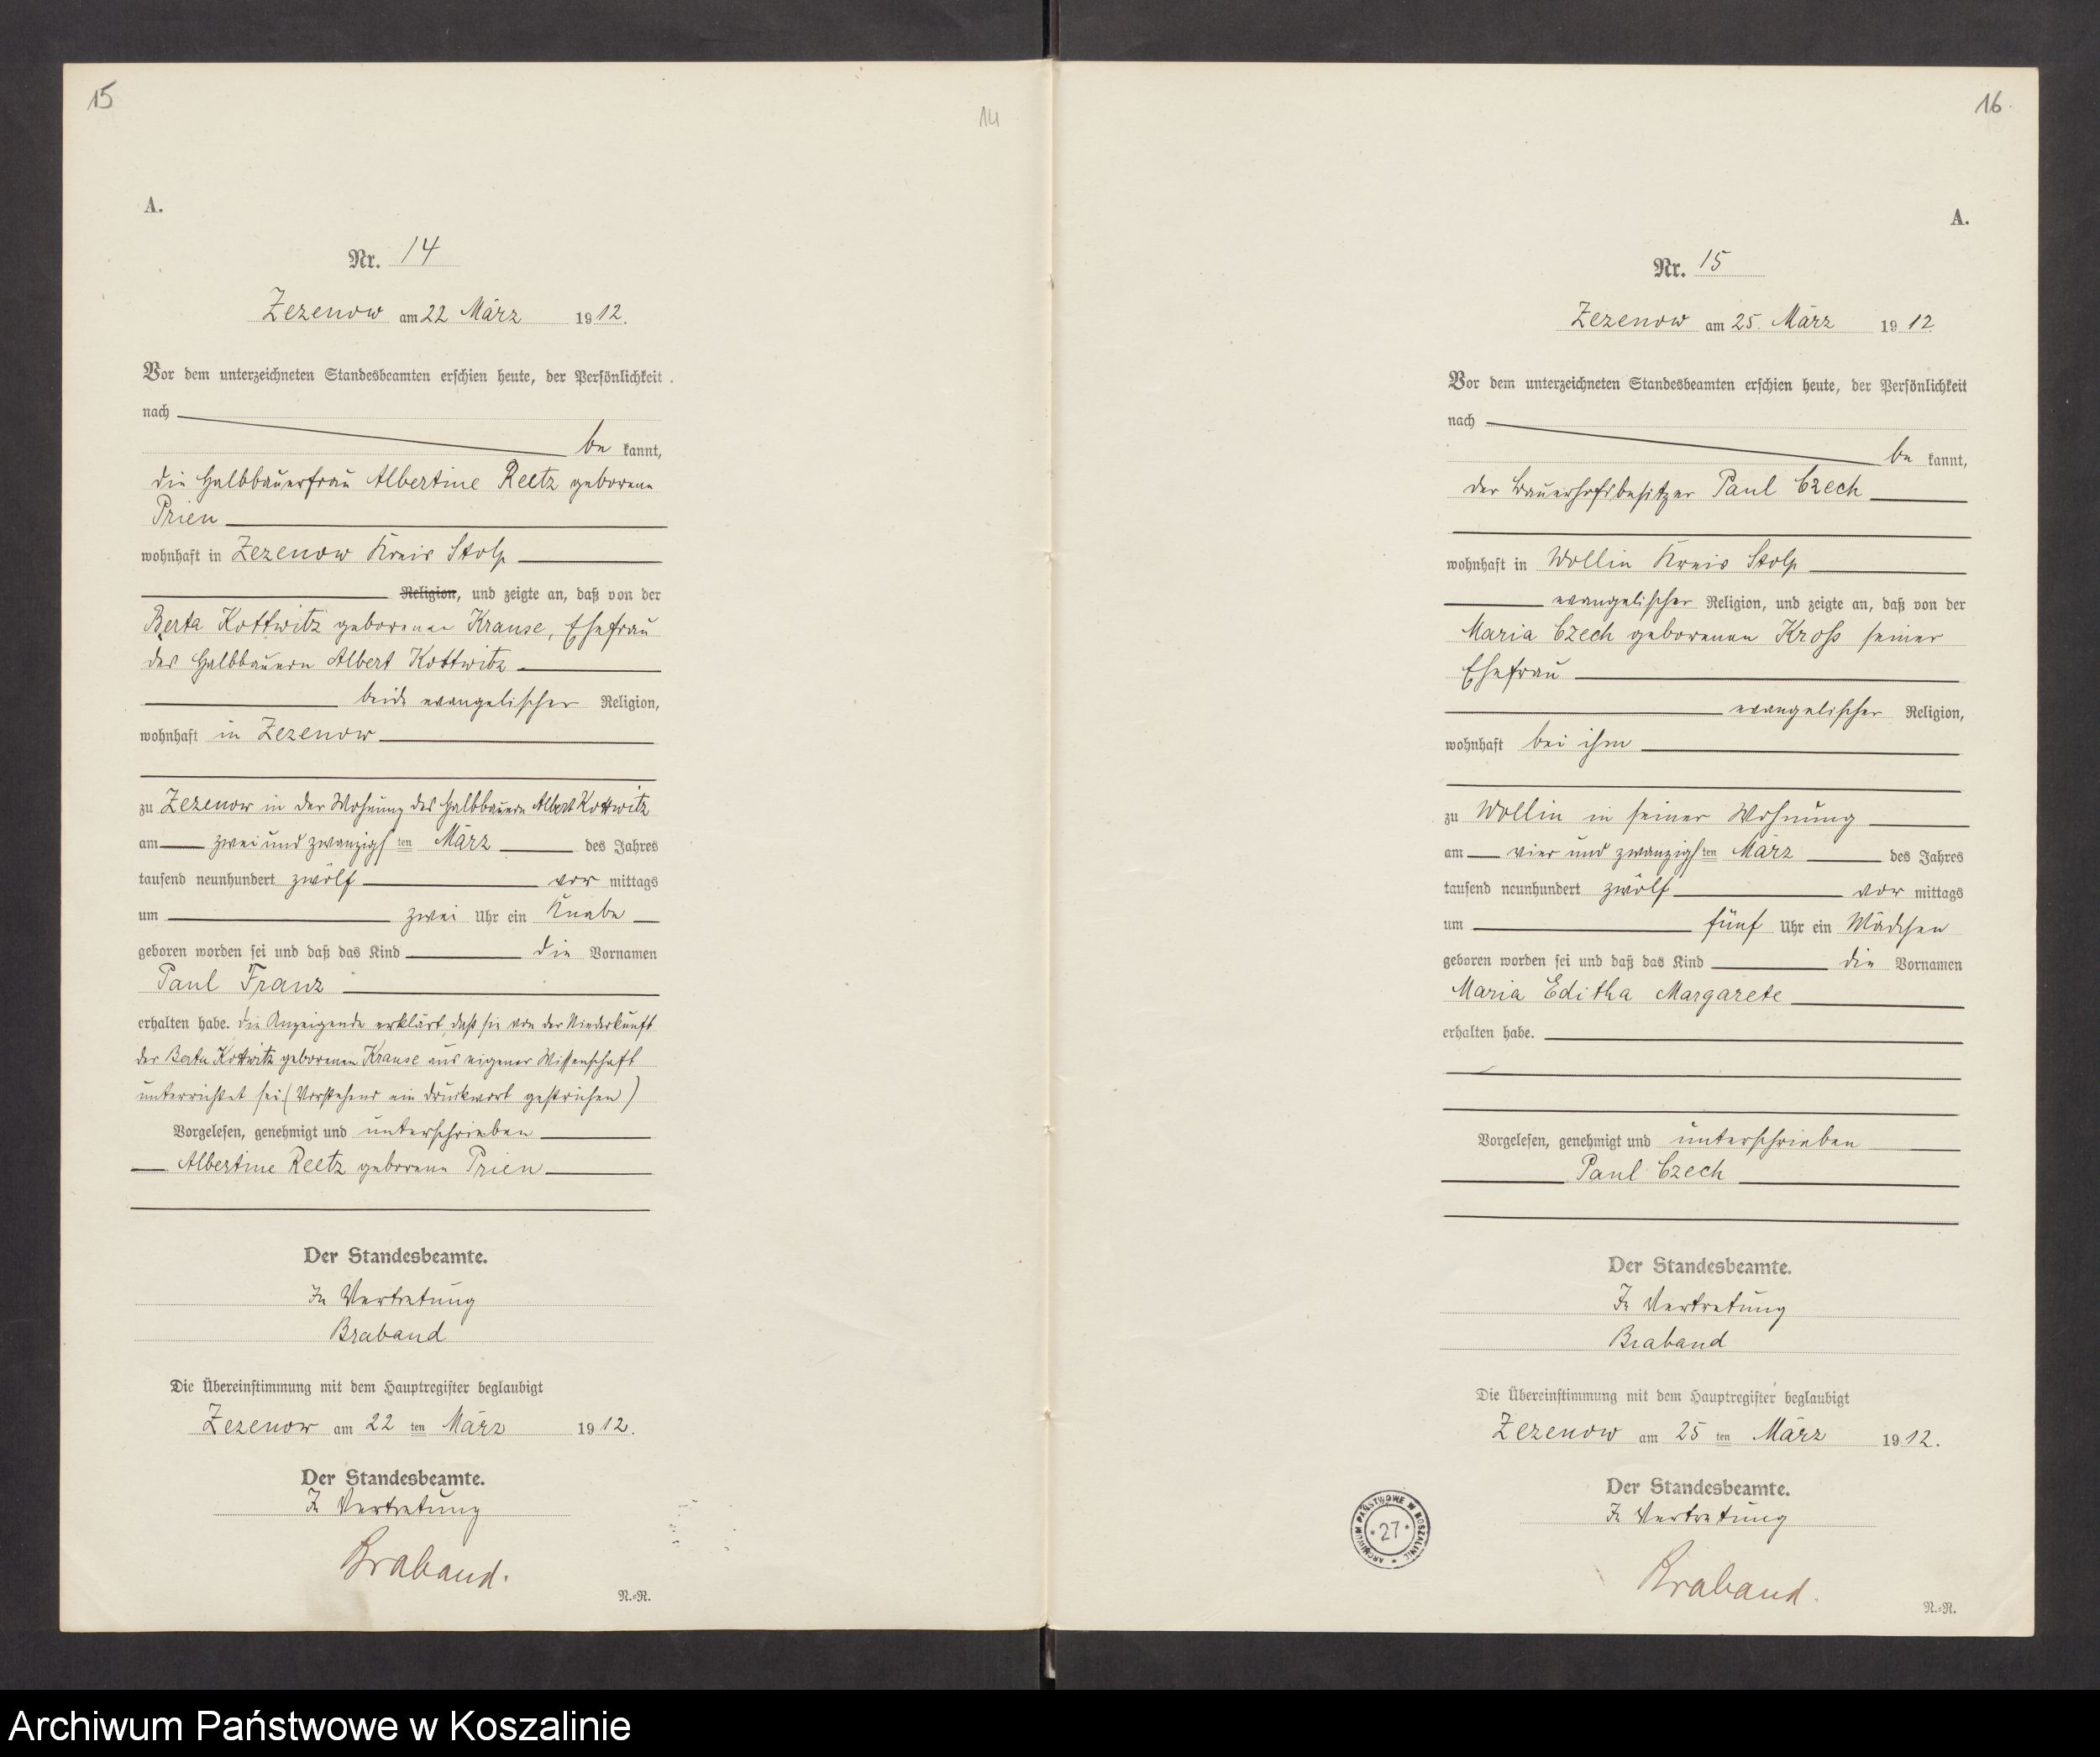 15
14
A.
Nr. 14
Zezenow am 22 März 1912.
Vor dem unterzeichneten Standesbeamten erschien heute, der Persönlichkeit
nach
be kannt,
die Halbbauerfrau Albertine Reetz geborene
Prien
wohnhaft in Zezenow Kreis Stolp
Religion, und zeigte an, daß von der
Berta Kottwitz geborenen Krause, Ehefrau
des Halbbauern Albert Kottwitz
beide evangelischer Religion,
wohnhaft in Zezenow
zu Zezenow in der Wohnung des Halbbauern Albert Kottwitz
am zwei und zwanzigsten März des Jahres
tausend neunhundert zwölf vor mittags
um zwei Uhr ein Knabe
geboren worden sei und daß das Kind die Vornamen
Paul Franz
erhalten habe. Die Anzeigende erklärt, daß sie von der Niederkunft
der Berta Kottwitz geborenen Krause aus eigener Wissenschaft
unterrichtet sei (Vorstehend ein Druckwort gestrichen)
Vorgelesen, genehmigt und unterschrieben
Albertine Reetz geborene Prien
Der Standesbeamte.
In Vertretung
Braband
Die Übereinstimmung mit dem Hauptregister beglaubigt
Zezenow am 22 ten März 1912.
Der Standesbeamte.
In Vertretung
Braband.
N.=R.
16
A.
Nr. 15
Zezenow am 25. März 1912
Vor dem unterzeichneten Standesbeamten erschien heute, der Persönlichkeit
nach
be kannt,
der Bauerhofsbesitzer Paul Czech
wohnhaft in Wollin Kreis Stolp
evangelischer Religion, und zeigte an, daß von der
Maria Czech geborenen Kroß seiner
Ehefrau
evangelischer Religion,
wohnhaft bei ihm
zu Wollin in seiner Wohnung
am vier und zwanzigsten März des Jahres
tausend neunhundert zwölf vor mittags
um fünf Uhr ein Mädchen
geboren worden sei und daß das Kind die Vornamen
Maria Editha Margarete
erhalten habe.
Vorgelesen, genehmigt und unterschrieben
Paul Czech
Der Standesbeamte.
In Vertretung
Braband
Die Übereinstimmung mit dem Hauptregister beglaubigt
Zezenow am 25 ten März 1912.
Der Standesbeamte.
In Vertretung
Braband.
N.=R.
ARCHIWUM PAŃSTWOWE W KOSZALINIE
* 27 *
Archiwum Państwowe w Koszalinie